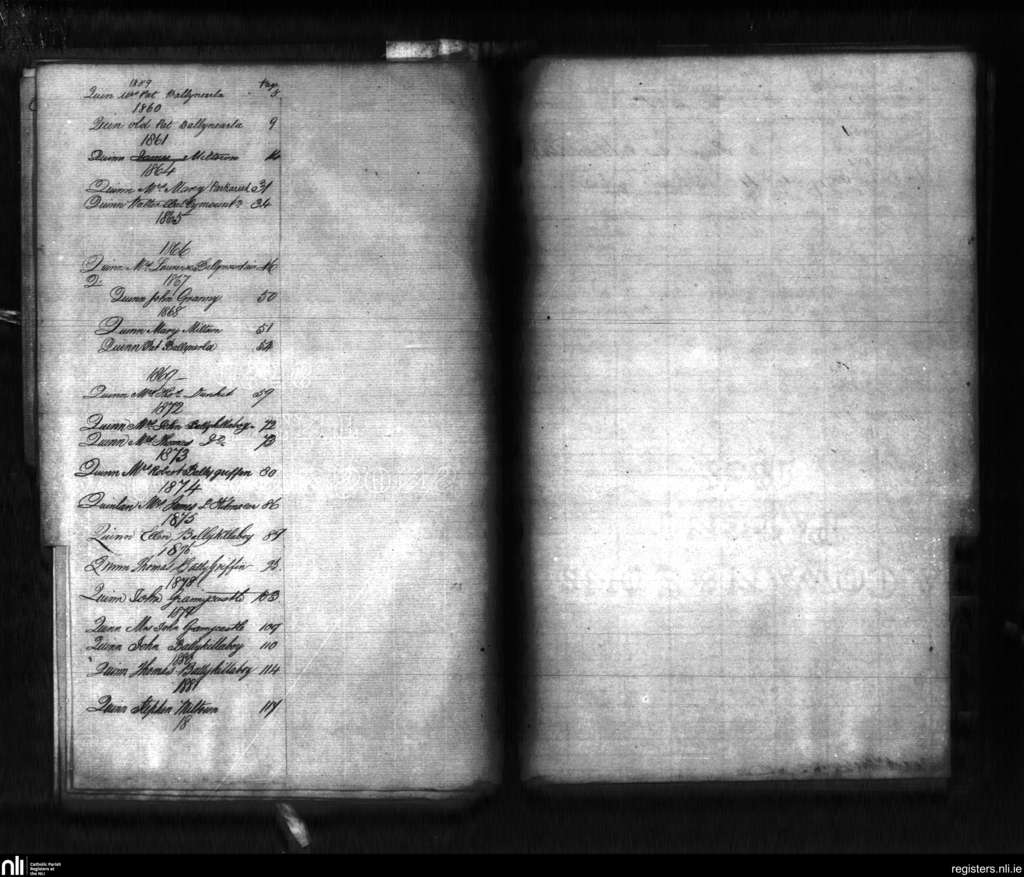 1859 Page
Quin Pat Ballynearla 5
1860
Quin old Pat Ballynearla 9
1861
Quinn James Miltown 14
1864
Quinn Mrs Mary 31
Quinn Ballymount 34
1865
1866
Quinn Mrs 46
1867
Quinn John Granny 50
1868
Quinn Mary Miltown 51
Quenn Pat Ballynerla 54
1869
Quinn Mrs Dunkit 59
1872
Quinn Mrs John Ballykillaboy 72
Quinn Mrs Thomas Do 73
1873
Quinn Mrs Robert Ballygriffen 80
1874
Quinlan Mrs James 86
1875
Quinn Ellen Ballykillaboy 89
1876
Quinn Thomas Ballygriffin 95
1878
Quinn John Grannycastle 103
1879
Quinn Mrs John Grannycastle 109
Quinn John Ballykillaboy 110
1880
Quinn Thomas Ballykillaboy 114
1881
Quinn Stephen Miltown 117
18
nli Catholic Parish
Registers at
the NLI
registers.nli.ie